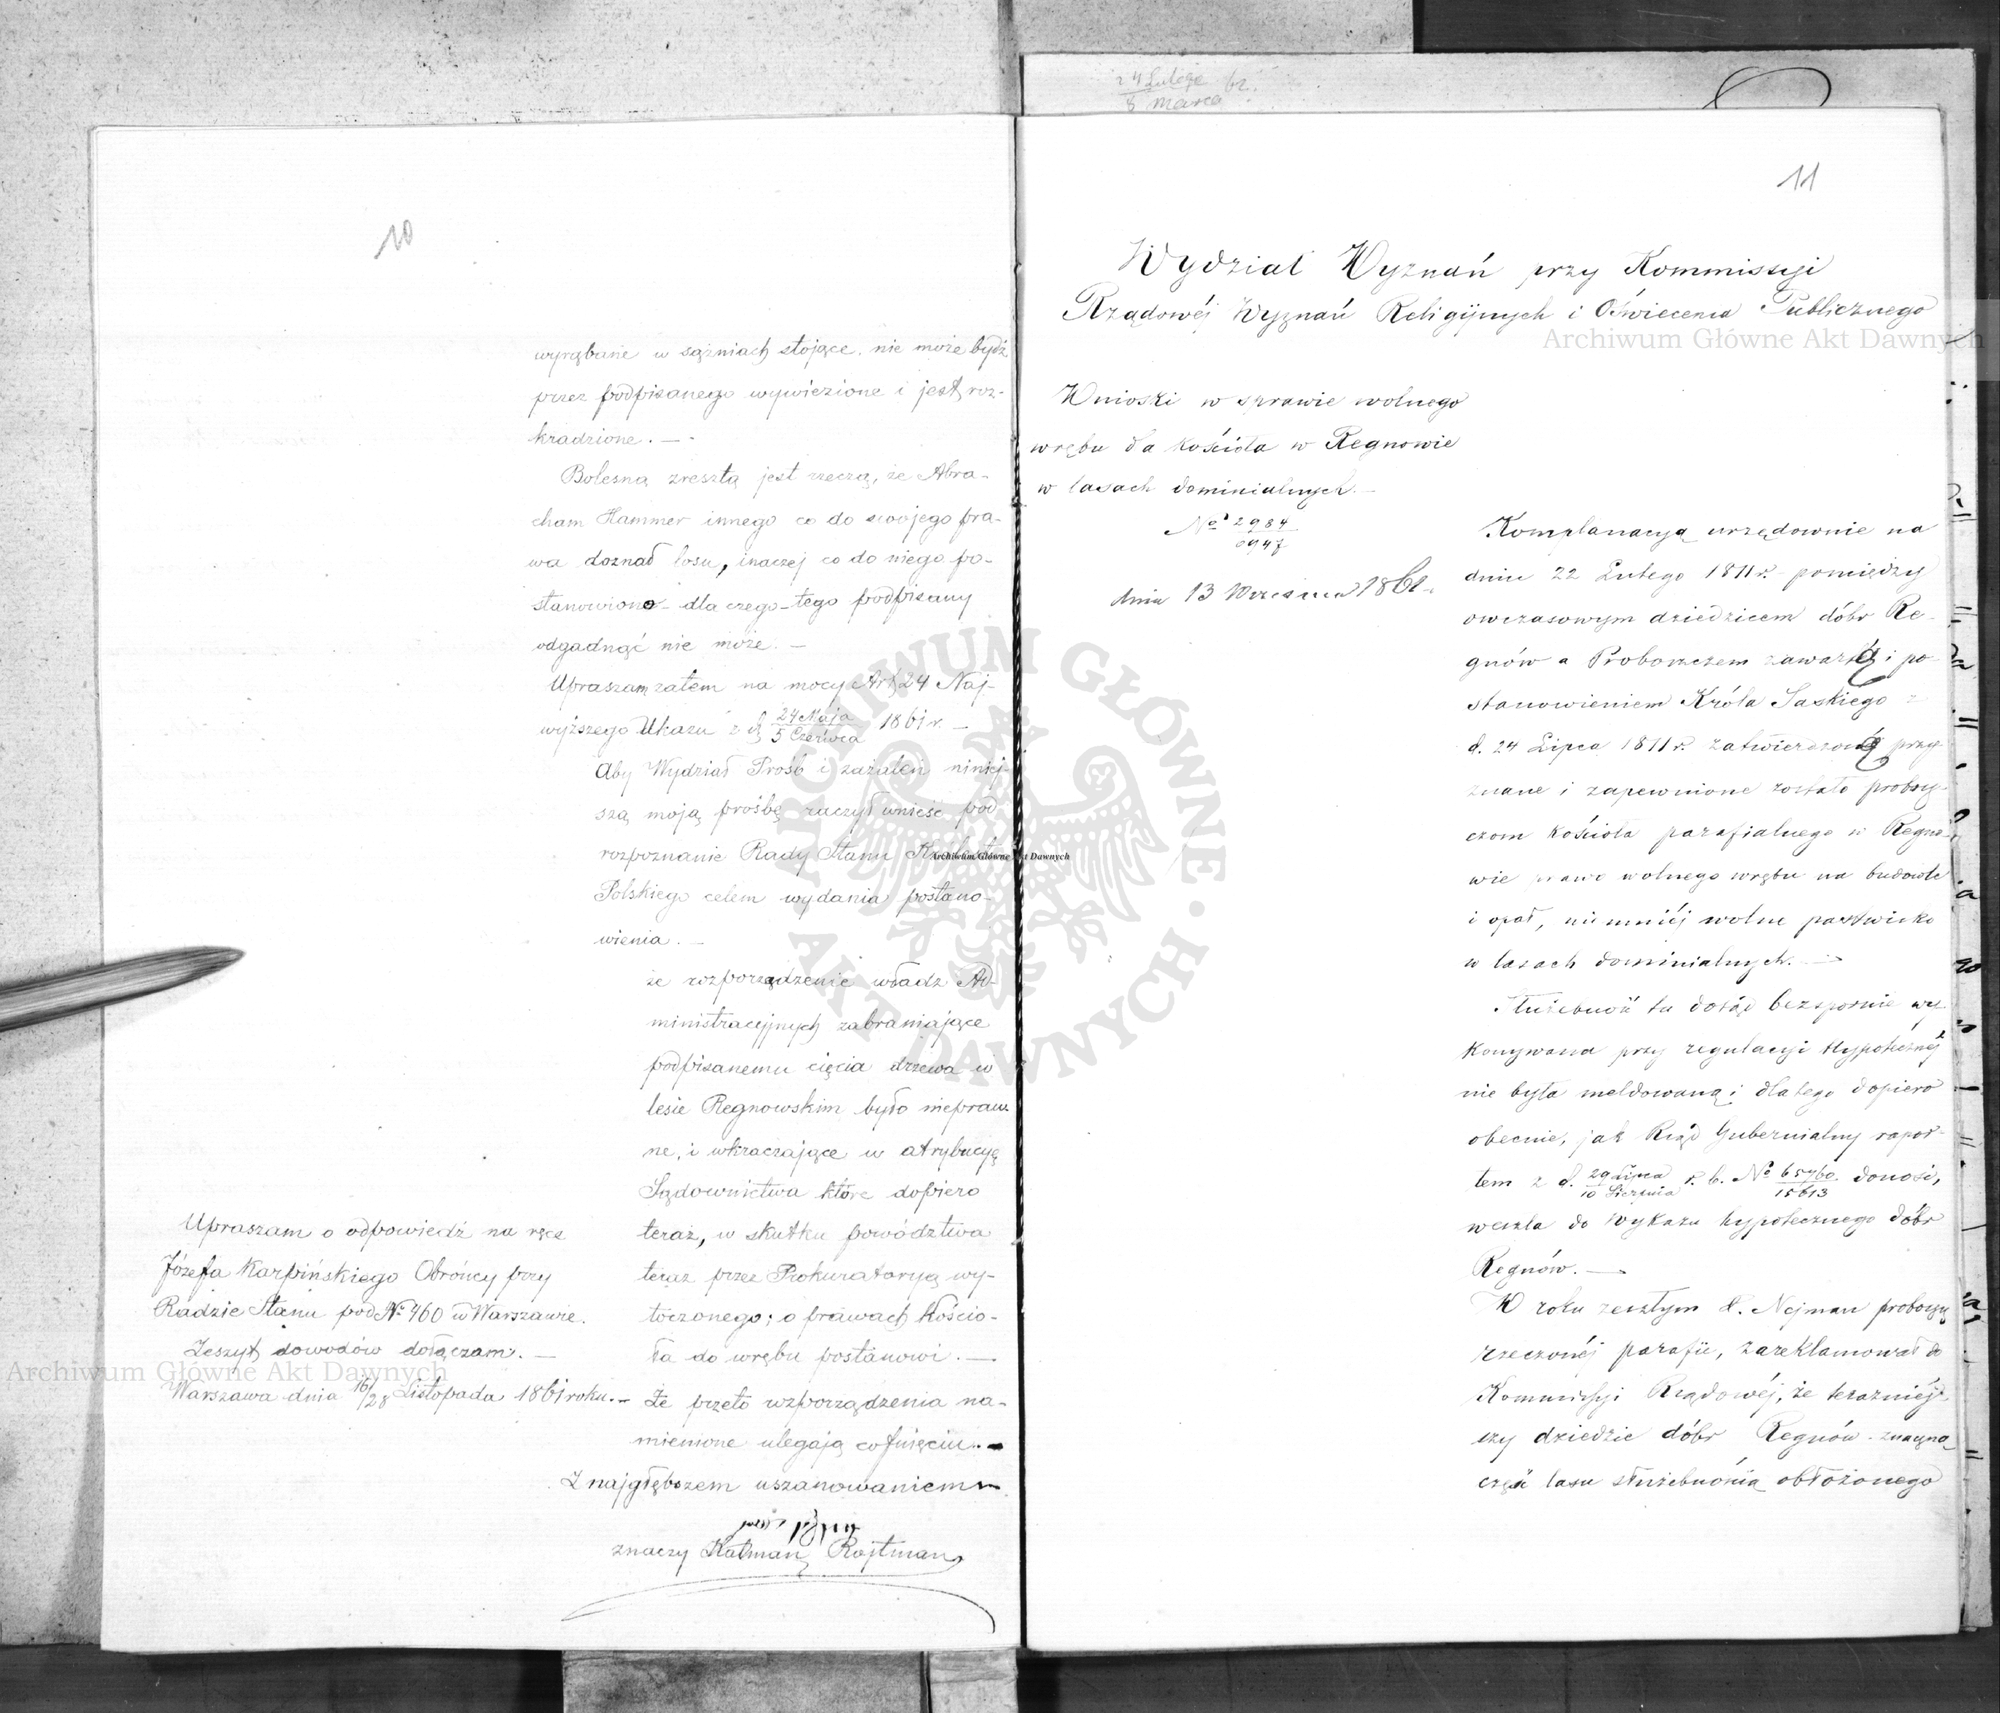 10
wyrąbane w sążniach stojące nie może bydź
przez podpisanego wywiezione i jest roz-
kradzione. —
Bolesną zresztą jest rzeczą, że Abra-
cham Hammer innego co do swojego pra-
wa doznał losu, inaczej co do niego po-
stanowiono – dla czego – tego podpisany
odgadnąć nie może. —
Upraszam zatem na mocy Art 24 Naj-
wyższego Ukazu z d 24 Maja / 5 Czerwca 1861 r. —
Aby Wydział Prośb i zażaleń niniej-
szą moją prośbę raczył wnieść pod
rozpoznanie Rady Stanu Królestwa
Polskiego celem wydania postano-
wienia. —
że rozporządzenie władz Ad-
ministracyjnych zabraniające
podpisanemu cięcia drzewa w
lesie Regnowskim było niepraw-
ne, i wkraczające w atrybucyę
Sądownictwa które dopiero
teraz, w skutku powództwa
teraz przez Prokuratoryą wy-
toczonego; o prawach kościo-
ła do wrębu postanowi. —
Że przeto rozporządzenia na-
mienione ulegają cofnięciu. —
Z najgłębszem uszanowaniem
znaczy Kalman Rojtman
Upraszam o odpowiedź na ręce
Józefa Karpińskiego Obrońcy przy
Radzie Stanu pod No 460 w Warszawie.
Zeszyt dowodów dołączam. —
Warszawa dnia 16/28 Listopada 1861 roku. —
24 Lutego / 8 marca 62.
11
Wydział Wyznań przy Kommissyi
Rządowéj Wyznań Religijnych i Oświecenia Publicznego
Wnioski w sprawie wolnego
wrębu dla kościoła w Regnowie
w lasach dominialnych. —
No 2984 / 6947
dnia 13 Września 1861.
Komplanacyą urzędownie na
dniu 22 Lutego 1811 r. pomiędzy
owczasowym dziedzicem dóbr Re-
gnów a Proboszczem zawartą i po-
stanowieniem Króla Saskiego z
d. 24 Lipca 1811 r. zatwierdzoną przy-
znane i zapewnione zostało probosz-
czom kościoła parafialnego w Regno-
wie prawo wolnego wrębu na budowle
i opał, niemniéj wolne pastwisko
w lasach dominialnych. —
Służebność ta dotąd bezspornie wy-
konywana przy regulacyi Hypotecznéj
nie była meldowaną i dlatego dopiero
obecnie, jak Rząd Gubernialny rapor-
tem z d. 29 Lipca / 10 Sierpnia r. b. No 65460 / 15613 donosi,
weszła do Wykazu hypotecznego dóbr
Regnów. —
W roku zeszłym X. Nejman proboszcz
rzeczonéj parafii, zareklamował do
Kommissyi Rządowéj, że teraźniej-
szy dziedzic dóbr Regnów znaczną
część lasu służebnością obłożonego
Archiwum Główne Akt Dawnych
ARCHIWUM GŁÓWNE AKT DAWNYCH
Archiwum Główne Akt Dawnych
Archiwum Główne Akt Dawnych